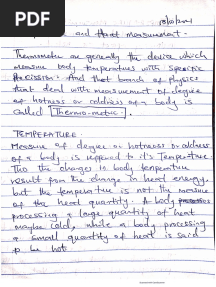 PDF
and heat measurement.
Thermometer are generally the device which
measure body temperatures with specific
precission. And that branch of physics
that deal with measurement of degree
of hotness or coldness of a body is
called Thermo-metric.
TEMPERATURE:
Measure of degree or hotness or coldness
of a body is reffered to it's Temperature.
Tho the changes in body temperature
result from the change in heat energy,
but the temperature is not the measure
of the heat quantity. A body
processing a large quantity of heat
maybe cold, while a body processing
a small quantity of heat is said
to be hot.